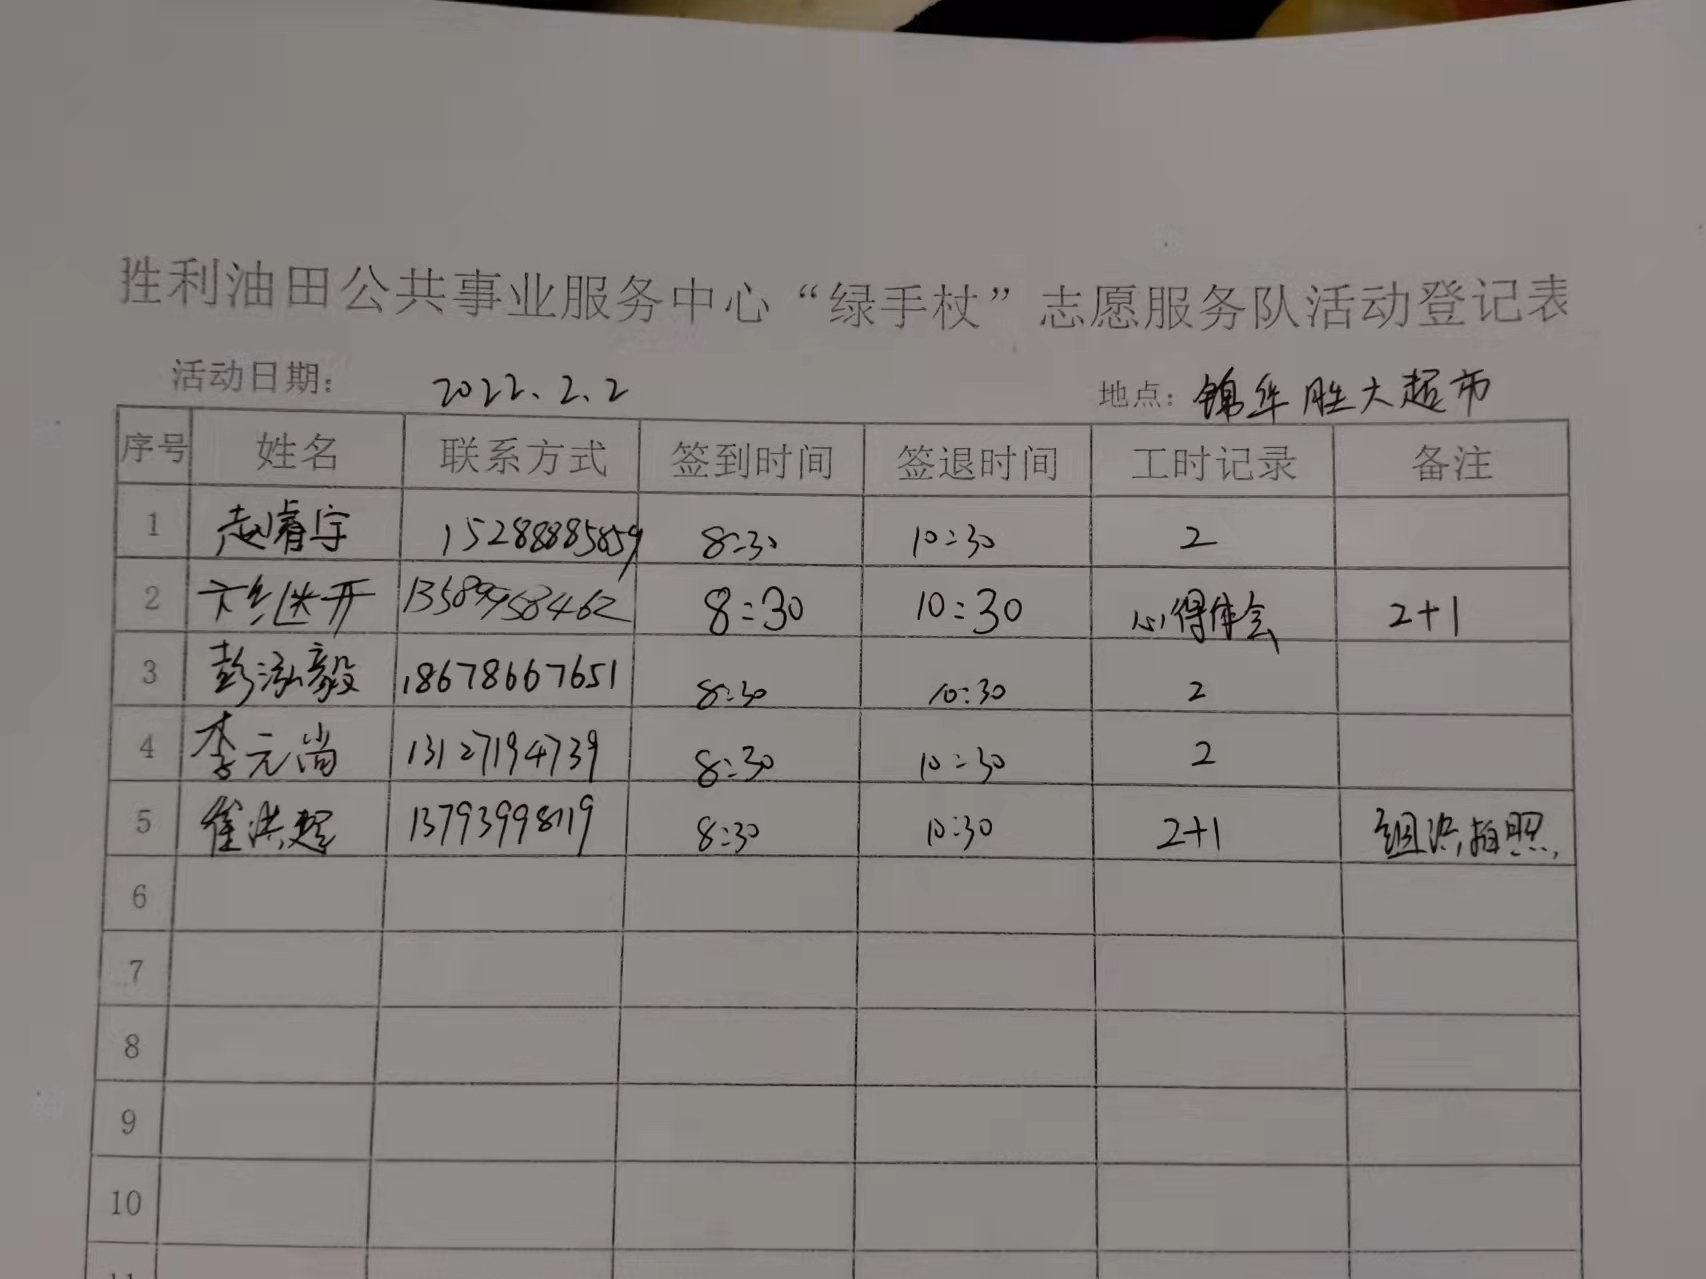 胜利油田公共事业服务中心“绿手杖”志愿服务队活动登记表
活动日期： 2022.2.2 地点：锦华胜大超市
序号 姓名 联系方式 签到时间 签退时间 工时记录 备注
1 赵睿宇 15288885859 8:30 10:30 2
2 8:30 10:30 心得体会 2+1
3 彭泓毅 18678667651 8:30 10:30 2
4 李元尚 13127194739 8:30 10:30 2
5 崔洪辉 8:30 10:30 2+1 组织,拍照,
6
7
8
9
10
11